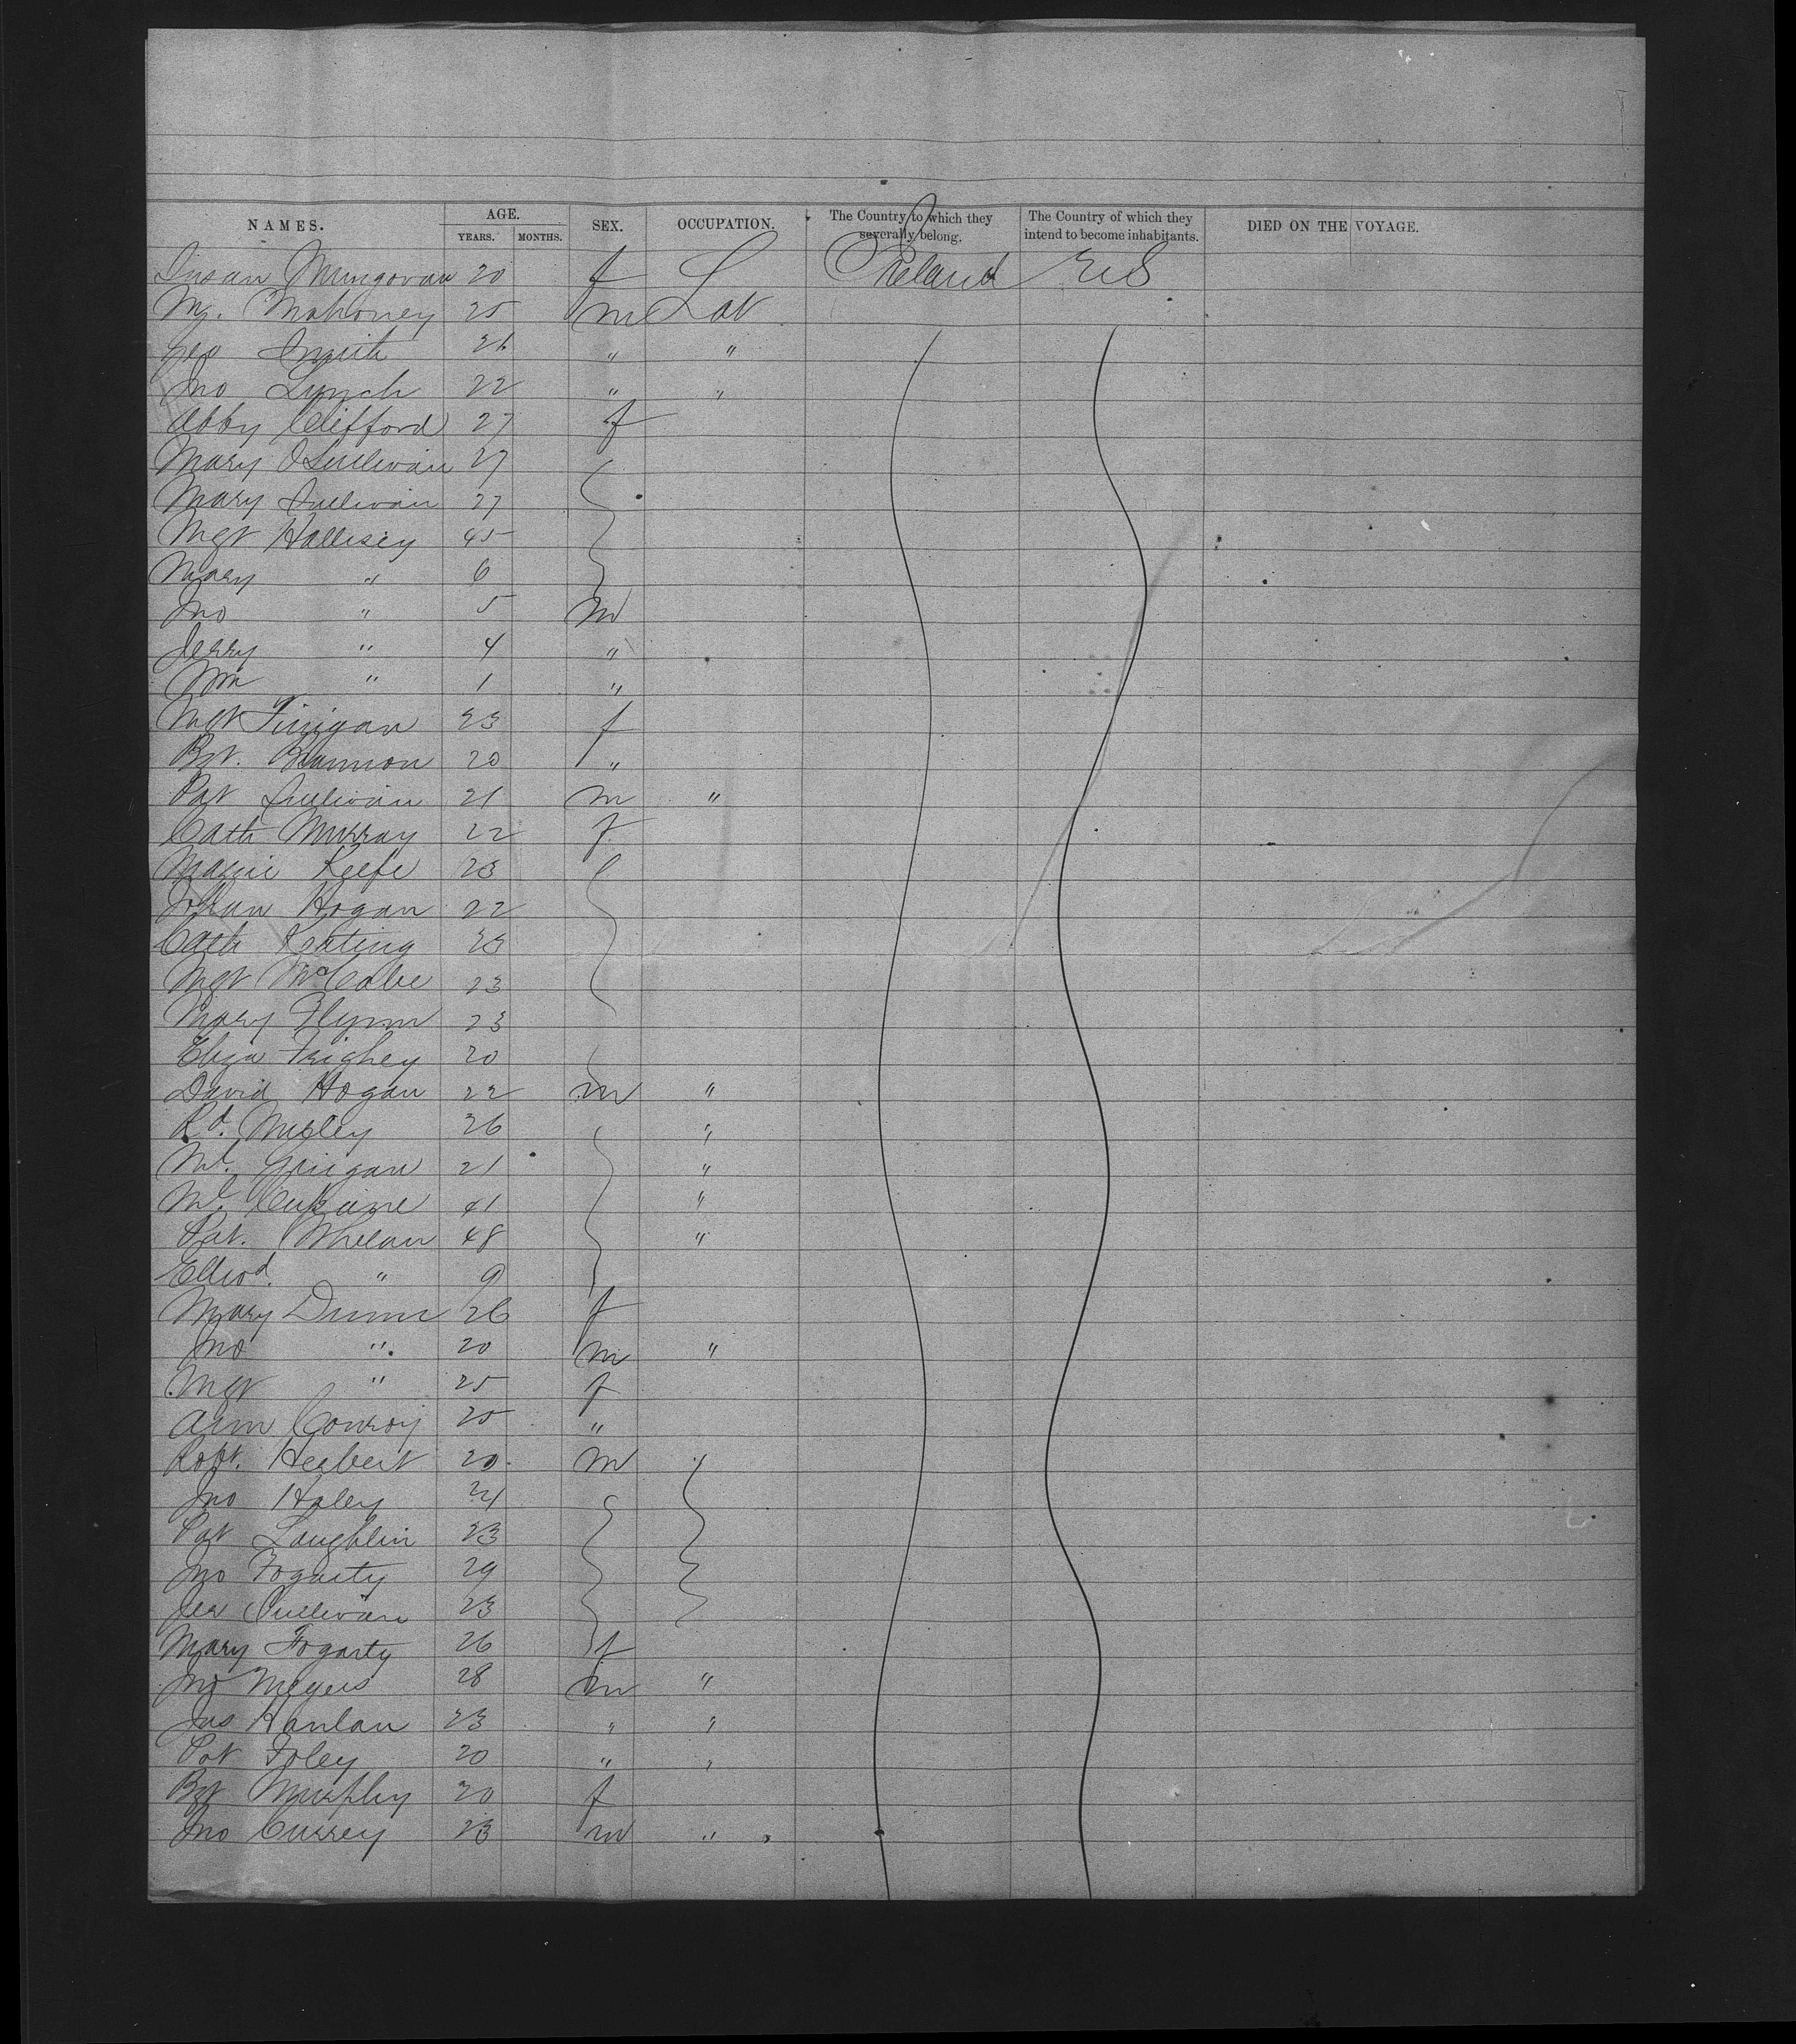 NAMES. AGE. SEX. OCCUPATION. The Country to which they severally belong. The Country of which they intend to become inhabitants. DIED ON THE VOYAGE.
YEARS. MONTHS.
Susan Mungovan 20 f Ireland U S
Mahoney 25 m Lab
Geo Smith 21 " "
Jno Lynch 22 " "
Abby Clifford 27 f
Mary OSullivan 27
Mary Sullivan 27
Mgt Hallisey 45
Mary " 6
Jno " 5 m
Jerry " 4 "
Wm " 1 "
Mgt Finigan 23 f
Bgt. Bannon 20 "
Pat Sullivan 21 m "
Cath Murray 22 f
Keefe 23
Johan Hogan 22
Cath Keating 23
Mgt McCabe 23
Mary Flynn 23
Eliza 20
David Hogan 22 m "
Rd. 26 "
Ml. 21 "
Ml. 41 "
Pat. Whelan 48 "
" 9
Mary Dunn 26 f
Jno " 20 m "
Mgt " 25 f
Ann Conroy 20 "
Robt. Herbert 20 m
Jno Haley 21
Pat Laughlin 23
Jno Fogarty 29
Jer Sullivan 23
Mary Fogarty 26 f
Jno Meyers 28 m "
Jas Hanlan 23 " "
Pat Foley 20 " "
Bgt Murphy 20 f
Jno Currey 23 m "